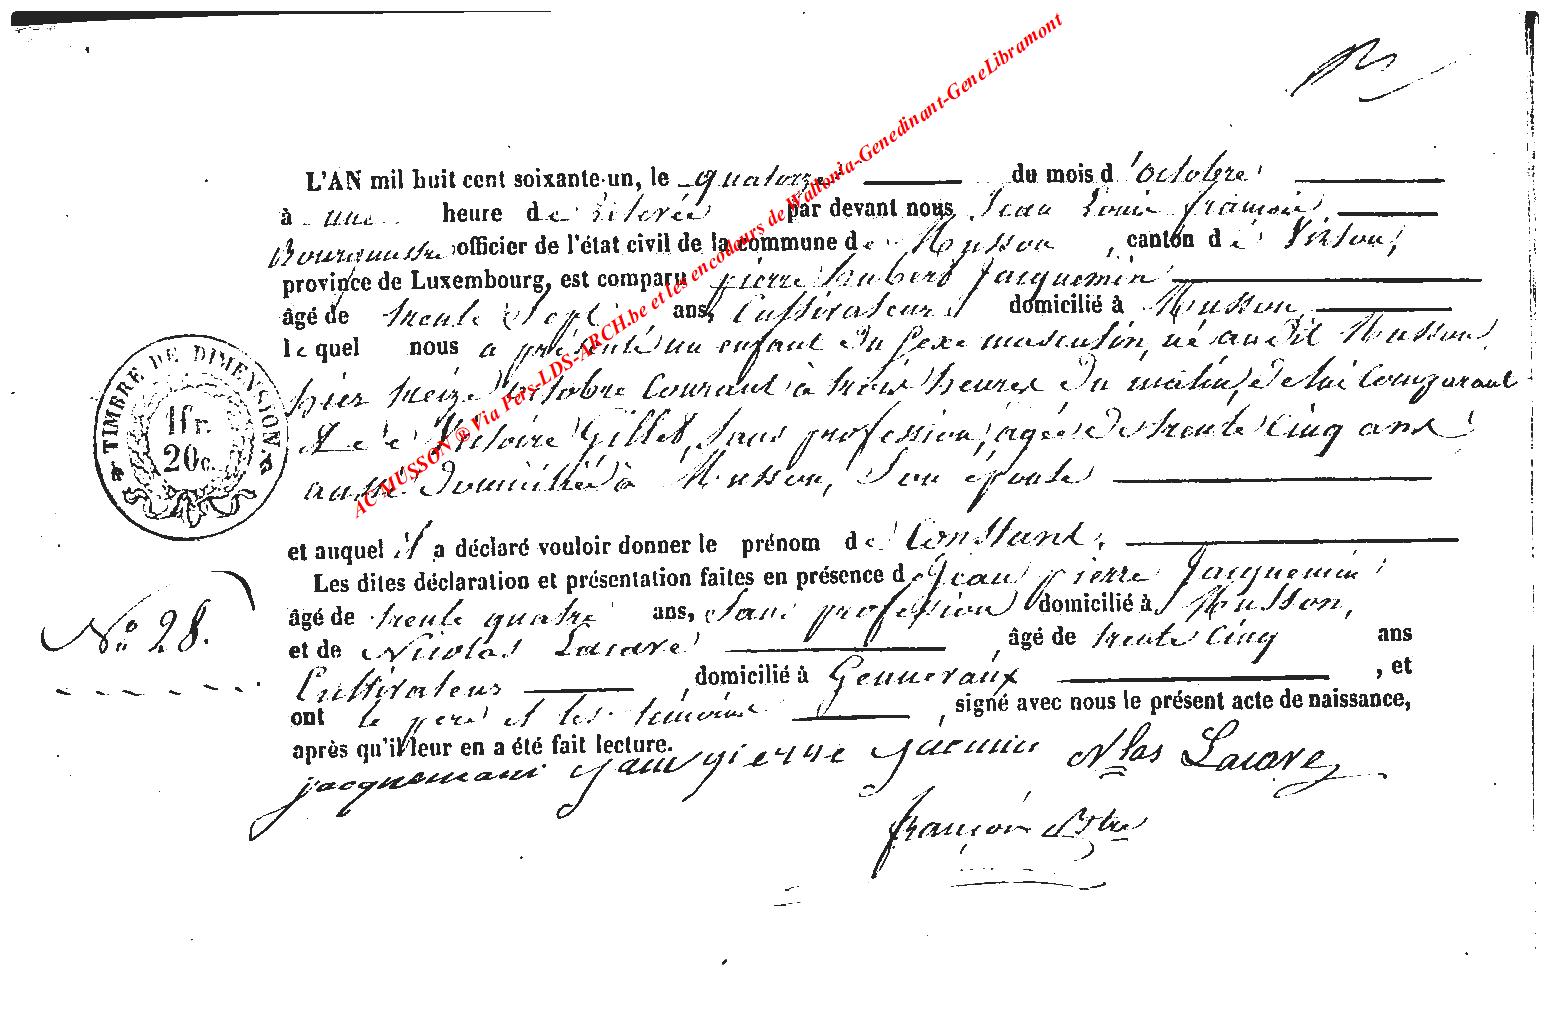 L'AN mil huit cent soixante-un, le quatorze du mois d'octobre
à une heure de relevée par devant nous Jean Louis françois,
Bourgmestre officier de l'état civil de la commune de Musson, canton de Virton,
province de Luxembourg, est comparu pierre hubert Jacquemin
âgé de trente Sept ans, Cultivateur domicilié à Musson,
lequel nous a présenté un enfant du Sexe masculin, né audit Musson
hier treize octobre Courant à trois heures du matin, de lui Comparant
et de Victoire Gillet, Sans profession, agée de trente Cinq ans
aussi domiciliée à Musson, Son épouse
et auquel il a déclaré vouloir donner le prénom de Constant,
Les dites déclaration et présentation faites en présence de Jean pierre Jacquemin
âgé de trente quatre ans, Sans profession domicilié à Musson,
et de Nicolas Lacave, âgé de trente Cinq ans
Cultivateur, domicilié à Gennevaux, et
ont le pere et les témoins, signé avec nous le présent acte de naissance,
après qu'il leur en a été fait lecture.
jacquemin Jean pierre Jacmin Nlas Lacave
françois Bstre
No 28.
TIMBRE DE DIMENSION.
1fr.
20c.
AC MUSSON ® Via Pers-LDS-ARCH.be et les encodeurs de Wallonia-Genedinant-GeneLibramont